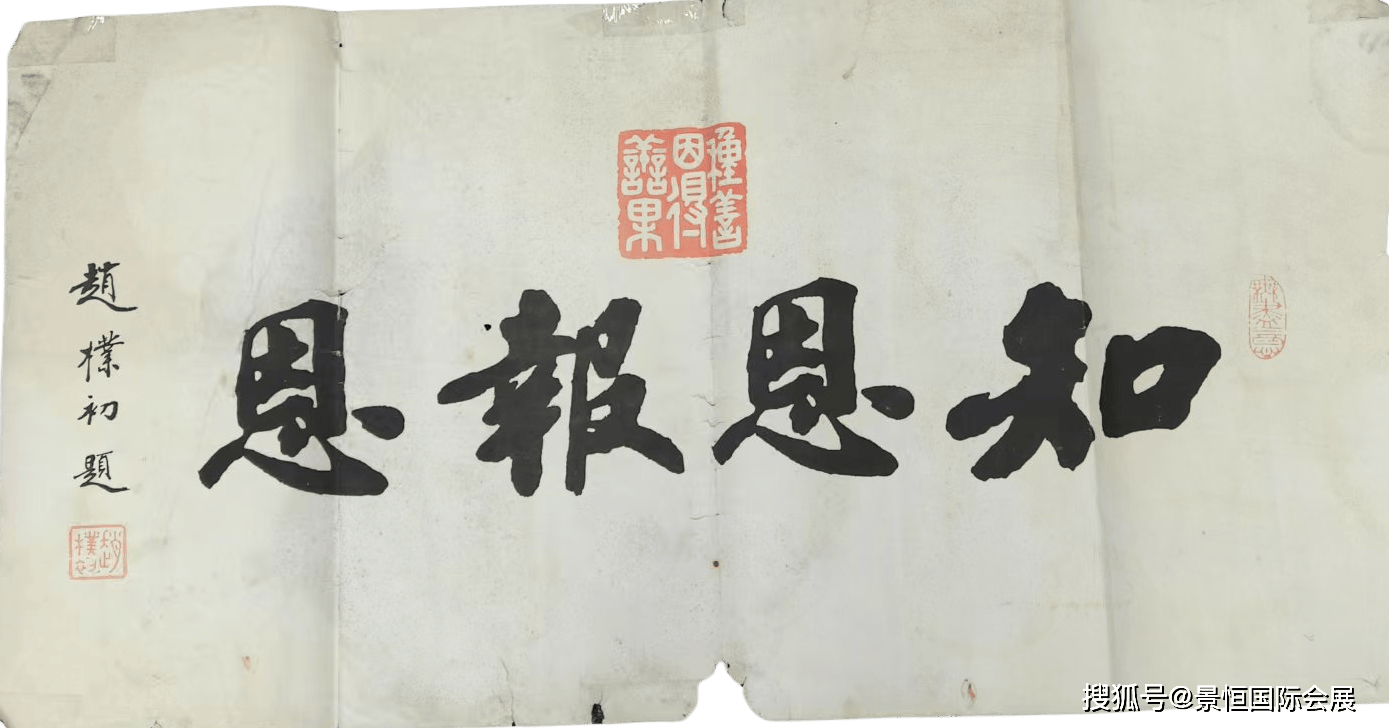 知恩報恩
種善
因得
善果
趙樸初題
趙樸初
搜狐号@景恒国际会展